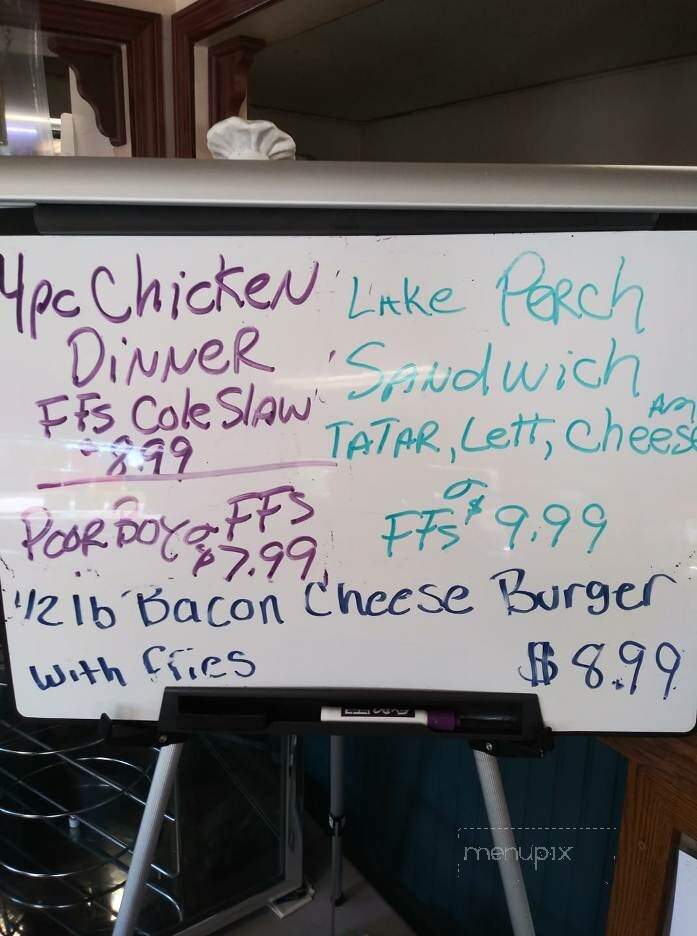 4pc Chicken
Dinner
FFs Cole Slaw
$8.99
Poor Boy & FFs
$7.99
Lake Perch
Sandwich
TATAR, Lett, Cheese
FFs $9.99
1/2 lb Bacon Cheese Burger
with fries
$8.99
menupix